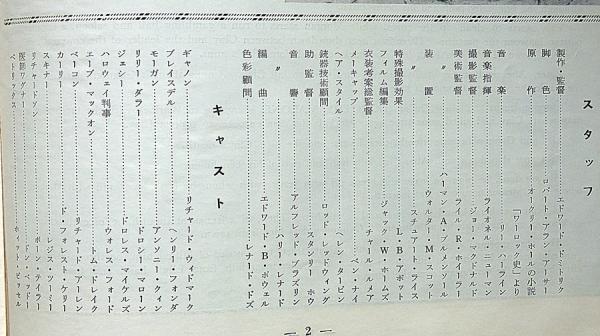 スタッフ
製作・監督……エドワード・ドミトリク
脚色……ロバート・アラン・アーサー
原作……オークリー・ホールの小説
「ワーロック史」より
音楽……リー・ハーライン
音楽指揮……ライオネル・ニューマン
撮影監督……ジョー・マクドナルド
美術監督……ライル・R・ホイラー
〃……ハーマン・A・ブルメンソール
装置……ウォルター・M・スコット
〃……スチュアート・ライス
特殊撮影効果……L・B・アボット
フィルム編集……ジャック・W・ホームズ
衣装考案総監督……チャールス・ルメア
メーキャップ……ベン・ナイ
ヘア・スタイル……ヘレン・タービン
銃器技術顧問……ロッド・レッドウィング
助監督……スタンリー・ホウ
音響……アルフレッド・ブラズリン
〃……ハリー・レナード
編曲……エドワード・B・ポウェル
色彩顧問……レナード・ドス
キャスト
ギャノン……リチャード・ウィドマーク
ブレイスデル……ヘンリー・フォンダ
モーガン……アンソニー・クイン
リリー・ダラー……ドロシー・マローン
ジェシー……ドロレス・マイケルズ
ハロウェイ判事……ウォレス・フォード
エーブ・マックオン……トム・ドレイク
ベーコン……リチャード・アーレン
カーリ……ド・フォレスト・ケリー
スキナー……レジス・ツーミー
リチャードソン……ボーン・テイラー
医師ワグナー……ドン・ベドー
ペトリックス……ホイット・ビッセル
— 2 —